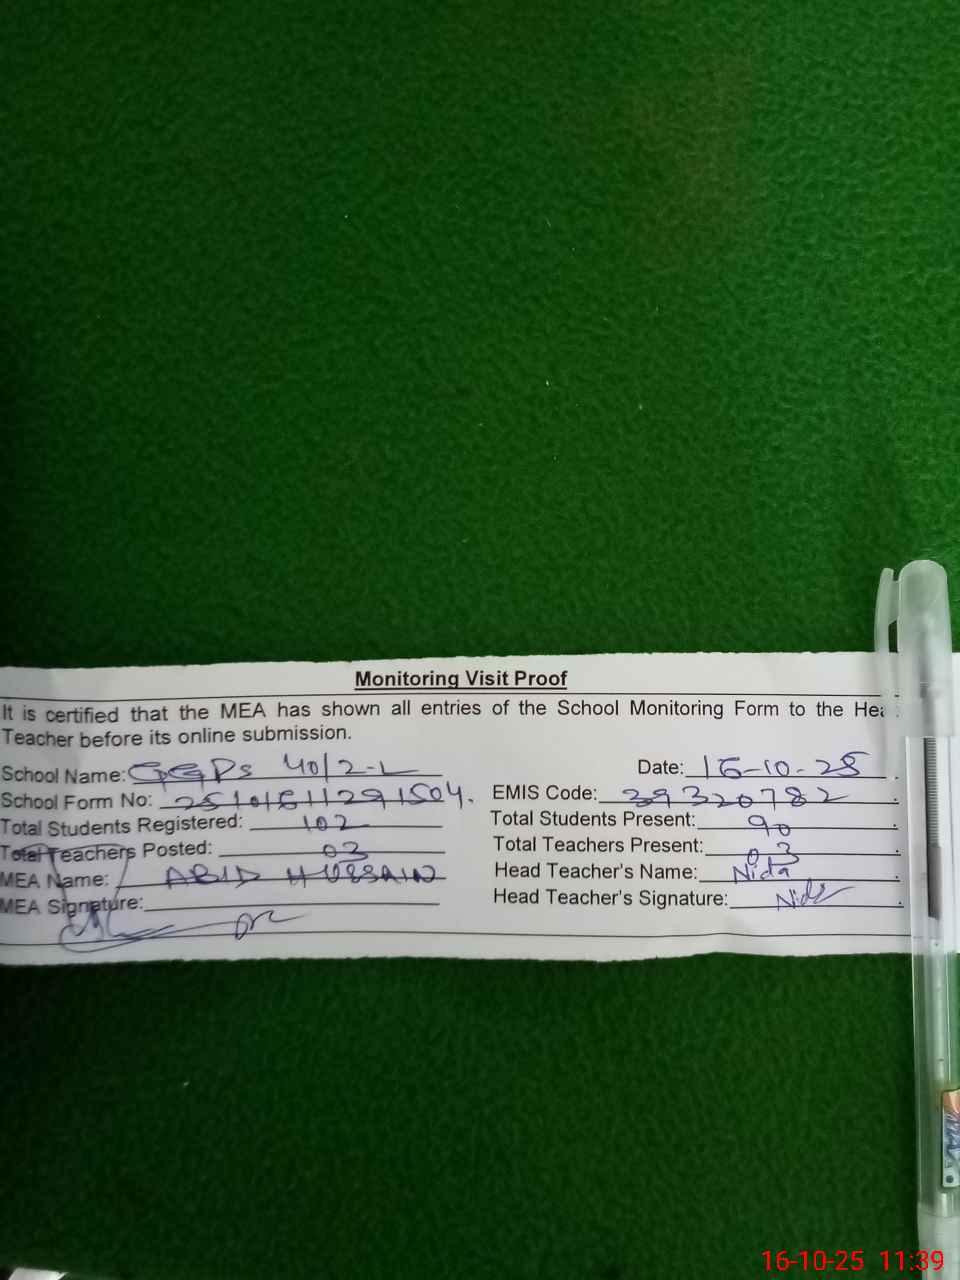 Monitoring Visit Proof
It is certified that the MEA has shown all entries of the School Monitoring Form to the Hea
Teacher before its online submission.
School Name: GGPS 40/2-L Date: 16-10-25
School Form No: 25101611291504. EMIS Code: 39320782
Total Students Registered: 102 Total Students Present: 90
Total Teachers Posted: 03 Total Teachers Present: 03
MEA Name: ABID HUSSAIN Head Teacher's Name: Nida
MEA Signature: Head Teacher's Signature: Nida
16-10-25 11:39